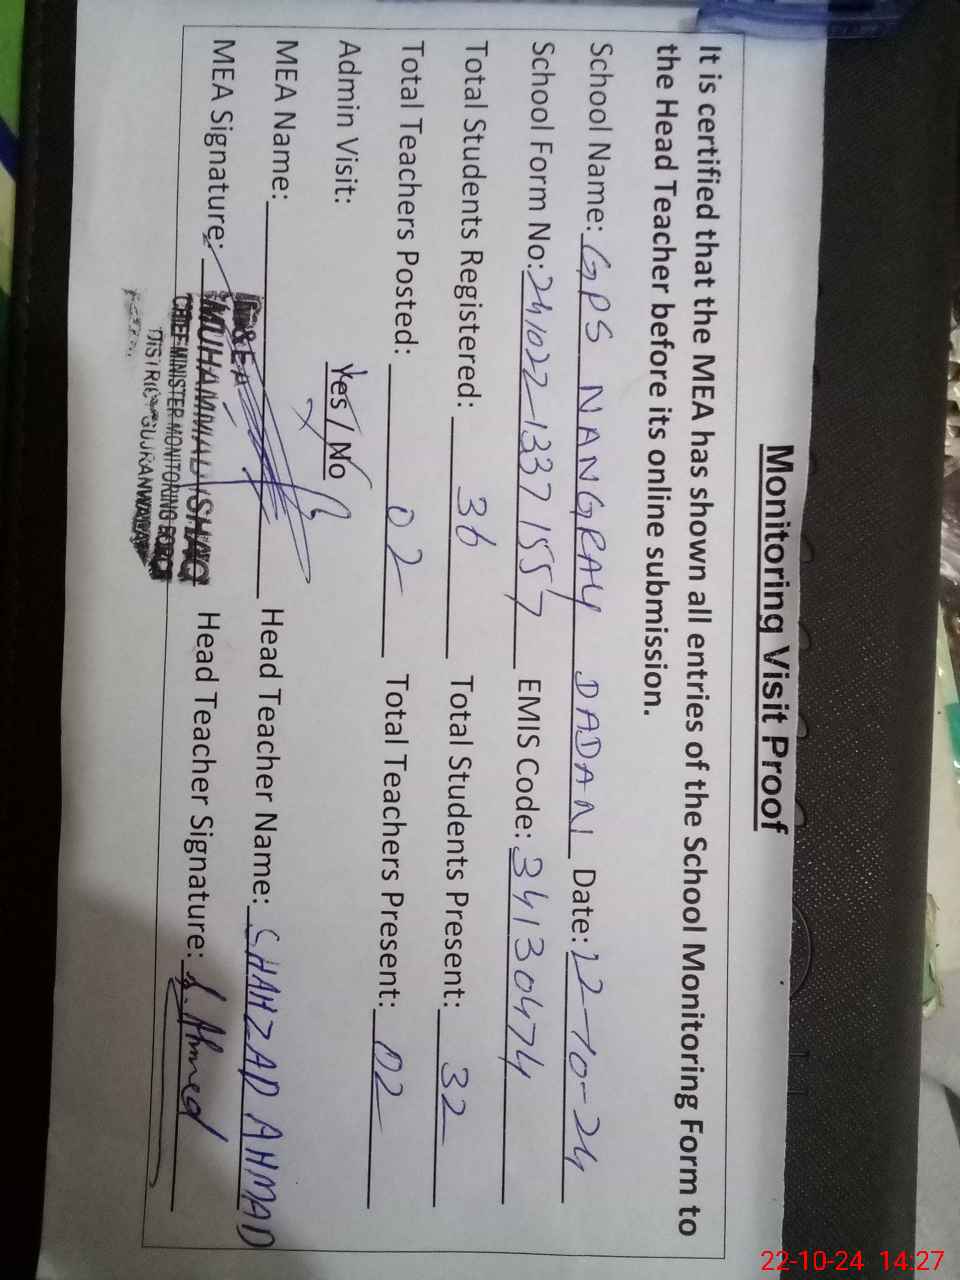 Monitoring Visit Proof
It is certified that the MEA has shown all entries of the School Monitoring Form to
the Head Teacher before its online submission.
School Name: GPS NANGRAY DADAN Date: 22-10-24
School Form No: 241022-13371557 EMIS Code: 34130474
Total Students Registered: 36 Total Students Present: 32
Total Teachers Posted: 02 Total Teachers Present: 02
Admin Visit: Yes / No
MEA Name: Head Teacher Name: SHAHZAD AHMAD
MEA Signature: MUHAMMAD ISHAQ Head Teacher Signature: S. Ahmed
CHIEF MINISTER MONITORING FORCE
DISTRICT GUJRANWALA
22-10-24 14:27